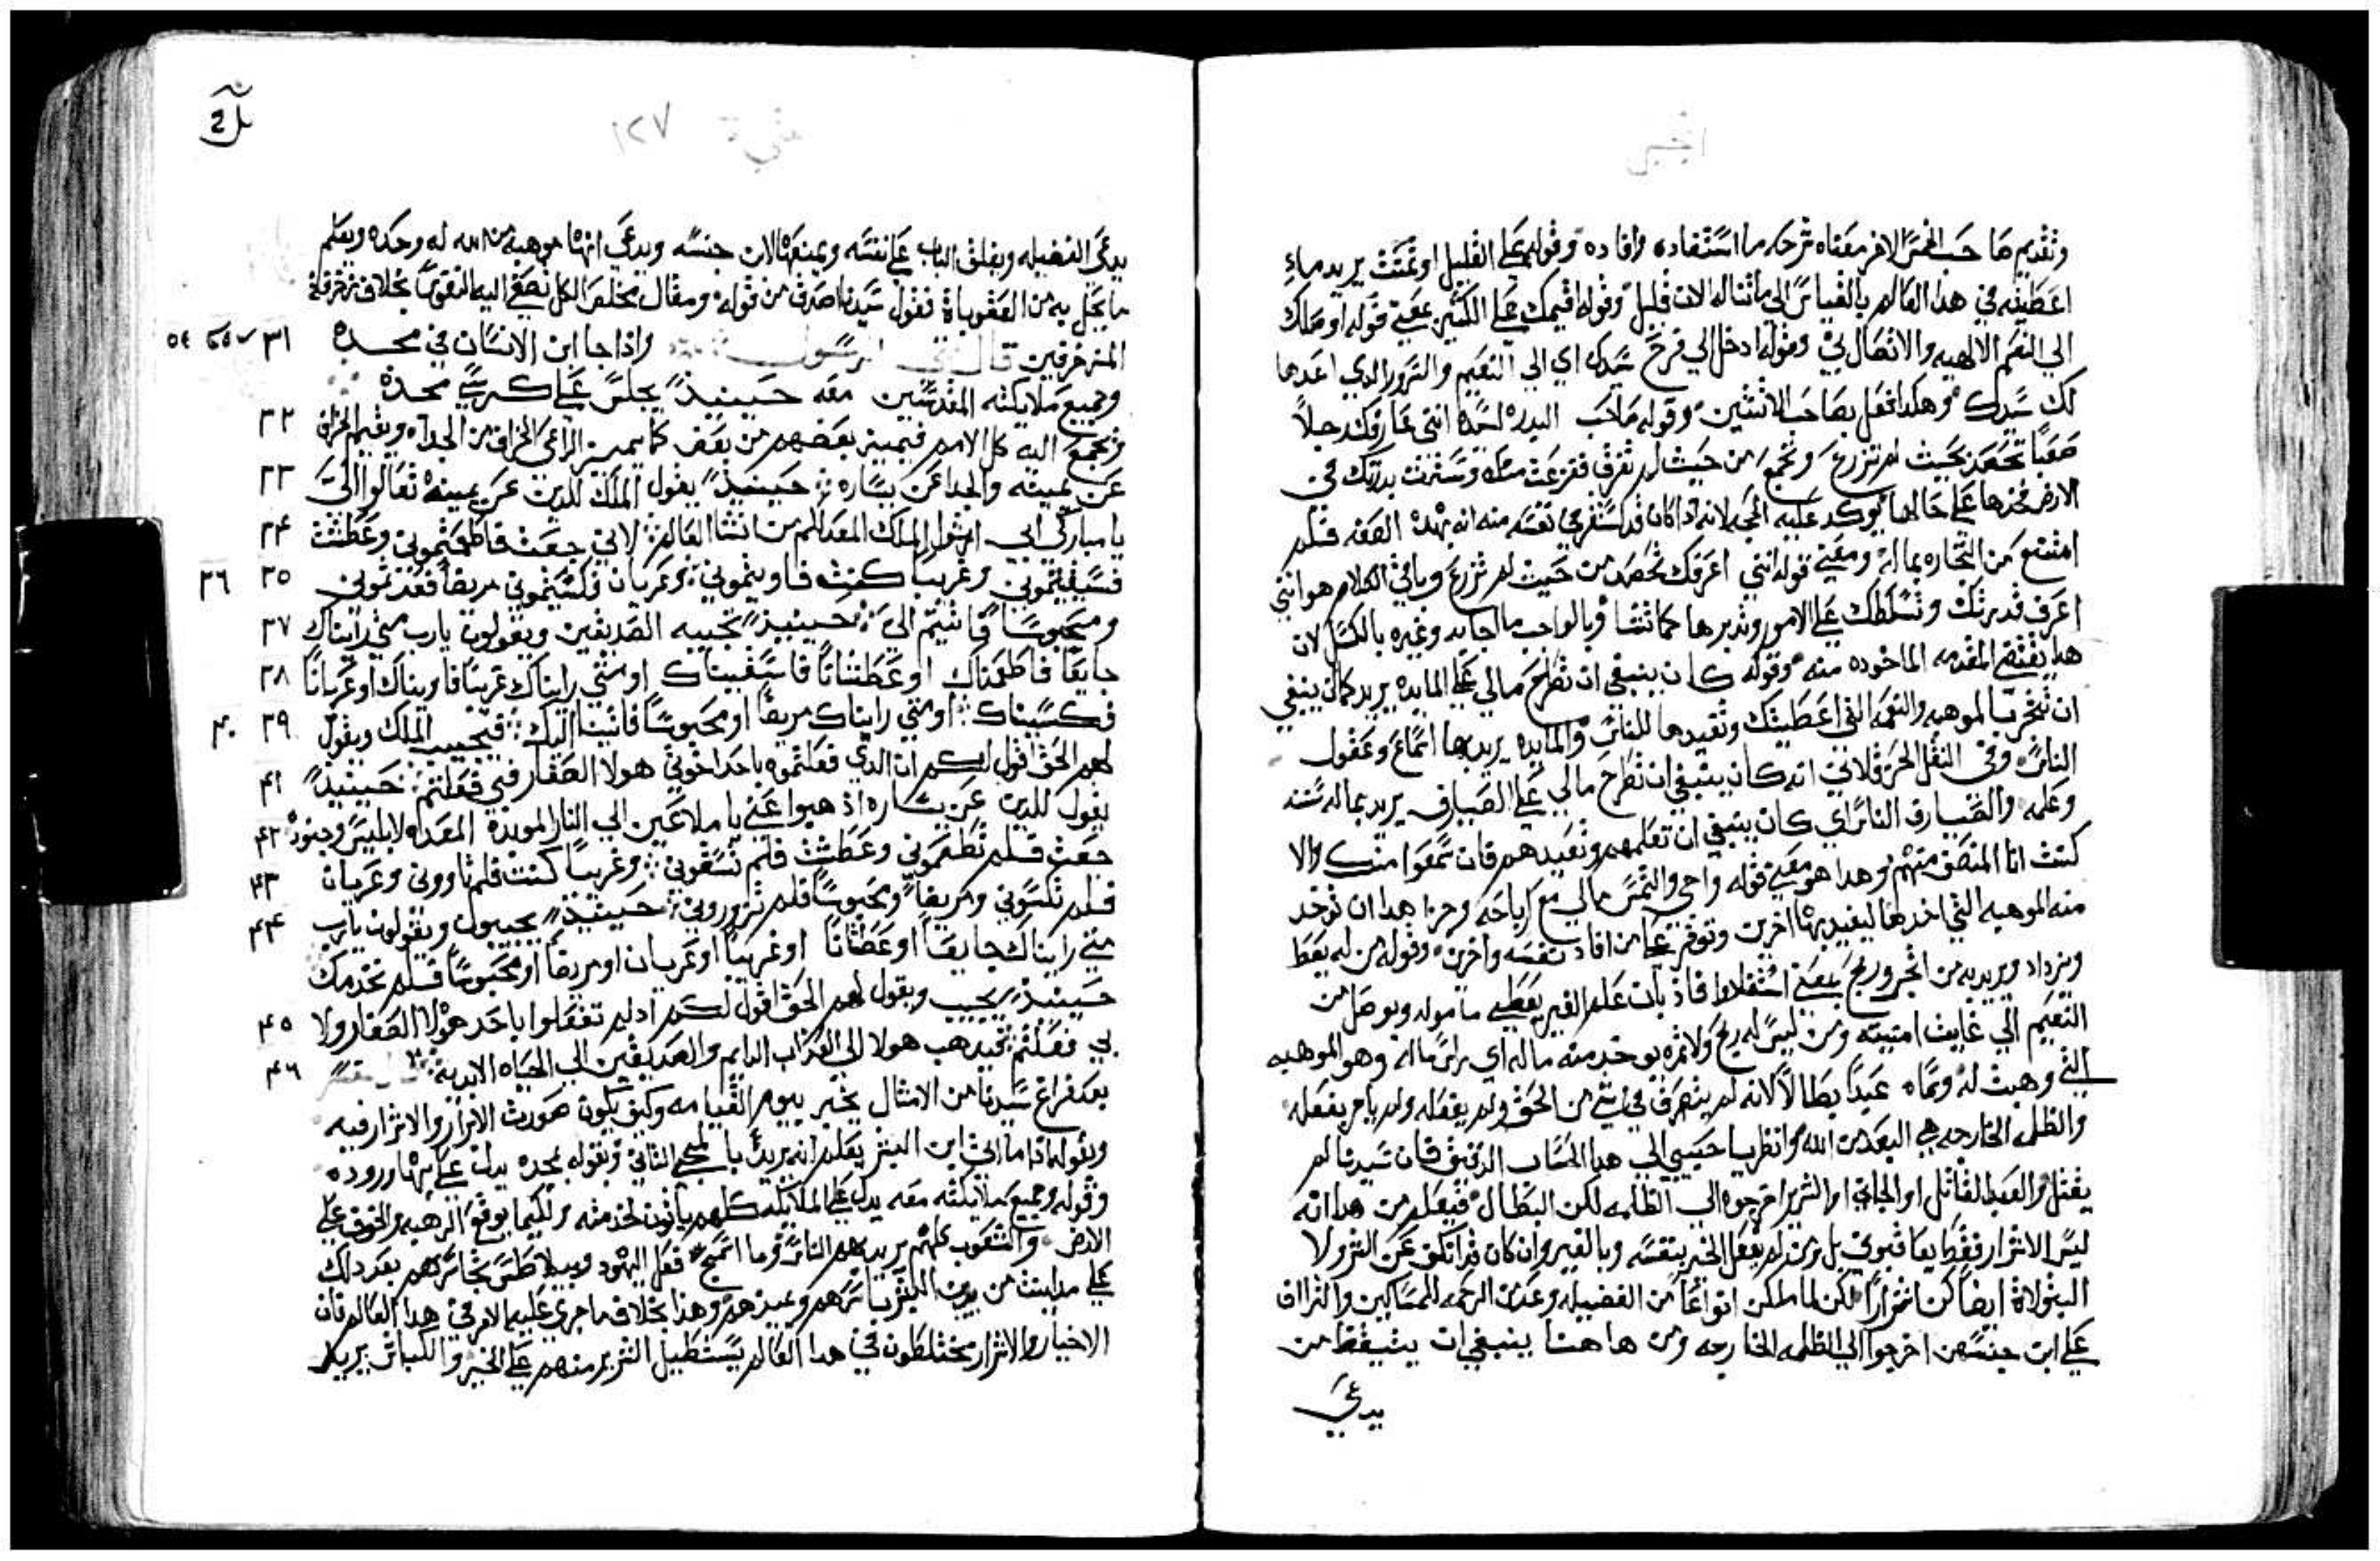 انجيل
وتقديمها حسب الخمس الاخر معناه شرحه ما استفاده وافاده وقوله على القليل اوتمنت يريد ماءِ
اعطيته في هدا العالم بالقياس الى ماتناله الان قليل وقوله اقيمك على الكثير يعني قوله اوصلك
الى النعم الالهيه والاتصال بي وقوله ادخل الى فرح سيدك اي الى النعيم والسرور الدي اعدها
لك سيدك وهكدا فعل بصاحب الاثنتين وقوله صاحب البدره لسيده انني عارفك رجلاً
صعباً تحصد بحيث لم تزرع وتجمع من حيث لم تفرق ففزعت منك وسترت بدرتك في
الارض فخدها على حالها يوكد عليه الحجه لانه ادا كان قد استقر في نفسه منه انه بهده الصفه فلم
امتنع من التجاره بماله ومعني قوله انني اعرفك تحصد من حيث لم تزرع وباقي الكلام هو انني
اعرف قدرتك وتسلطك على الامور وتدبرها كما تشا وبالواجب ما اجابه وغيره بالكسل لان
هدا يقتضي المقدمه الماخوده منه وقوله كان ينبغي ان تطرح مالي على المايده يريد كما كان ينبغي
ان تتجر بالموهبه والنعمه التي اعطيتك وتفيدها للناس والمايده يريد بها اسماع وعقول
الناس وفي النقل الحرقلاني انه كان ينبغي ان تطرح مالي على الصيارف يريد بماله سننه
وعلمه والصيارف الناس اي كان ينبغي ان تعلمهم وتفيدهم فان سمعوا منك والا
كنت انا المنصف منهم وهدا هو معني قوله واجي والتمس مالي مع ارباحه وجزا هدا ان توخد
منه الموهبه التي اخدها ليفيد بها اخرين وتوفر على من افاد نفسه واخرين وقوله من له يعطا
ويزداد ويريد به من اتجر وربح يعني استفلا وافاد بان علم الغير يعطى ماموله ويوصل من
النعيم الى غايت امنيته ومن ليس له ربح ولا ثمره يوخد منه ماله اي راس ماله وهو الموهبه
التي وهبت له وسماه عبداً بطالاً لانه لم يتصرف في شي من الحق ولم يفعله ولم يامر بفعله
والظلمه الخارجه هي البعد من الله وانظر يا حبيبي الى هدا الحساب الدقيق فان سيدنا لم
يقتل والعبد القاتل او الجاني او الشرير اخرجوه الى الظلمه لكن البطال فيعلم من هدا انه
ليس الاشرار فقط يعاقبون بل ومن لم يفعل الخير بنفسه وبالغير وان كان قد انكف عن الشر ولا
البتولات ايضاً كن اشراراً لكن لما ملكن انواعاً من الفضيله وعدمن الرحمه للمساكين والتراف
على ابن جنسهن اخرجوا الى الظلمه الخارجه ومن هاهنا ينبغي ان يتيقظ من
يدعي
متي ١٢٧
يدعي الفضيله ويغلق الباب على نفسه ويمنعها لابن جنسه ويدعي انها موهبه من الله له وحده ويعلم
ما يحل به من العقوبات فقول سيدنا اصدق من قوله ومقال مخلص الكل تصغي اليه النفوس بخلاف زخرفة
المتزخرفين قال متى الرسول واذا جا ابن الانسان في مجده ٣١
وجميع ملايكته المقدسين معه حينيذٍ يجلس على كرسي مجده
وتجمع اليه كل الامم فيميز بعضهم من بعض كما يميز الراعي الخراف من الجدا ويقيم الخراف ٣٢
عن يمينه والجدا عن يساره حينيذٍ يقول الملك للذين عن يمينه تعالوا الىّ ٣٣
يا مباركي ابي ارثوا الملك المعد لكم من انشا العالم لاني جعت فاطعمتموني وعطشت ٣٤
فسقيتموني وغريبا كنت فاويتموني وعريان فكسيتموني مريضاً فعدتموني ٣٥ ٣٦
ومحبوساً فاتيتم الي حينيذٍ تجيبه الصديقين ويقولون يارب متى رايناك ٣٧
جايعاً فاطعمناك او عطشاناً فاسقيناك او متي رايناك غريباً فاويناك او عرياناً ٣٨
فكسيناك او متي رايناك مريضاً او محبوساً فاتينا اليك فيجيب الملك ويقول ٣٩ ٤٠
لهم الحق اقول لكم ان الدي فعلتموه باحد اخوتي هولا الصغار فبي فعلتم حينيذٍ ٤١
يقول للدين عن يساره اذهبوا عني يا ملاعين الى النار الموبده المعده لابليس وجنوده ٤٢
جعت فلم تطعموني وعطشت فلم تسقوني وغريباً كنت فلم تاووني وعريان ٤٣
فلم تكسوني ومريضاً ومحبوساً فلم تزوروني حينيذٍ يجيبون ويقولون يارب ٤٤
متي رايناك جايعاً او عطشاناً او غريباً او عريان او مريضاً او محبوساً فلم نخدمك
حينيذٍ يجيب ويقول لهم الحق اقول لكم اد لم تفعلوا باحد هولا الصغار ولا ٤٥
بي فعلتم فيدهب هولا الى العذاب الدايم والصديقين الى الحياه الابديه ٤٦
بعد فراغ سيدنا من الامثال يخبر بيوم القيامه وكيف يكون صورت الابرار والاشرار فيه
وبقوله اذا ما اتى ابن البشر يعلم انه يريد بالمجي الثاني وبقوله بمجده يدل على بها وروده
وقوله وجميع ملايكته معه يدل على الملايكه كلهم ياتون لخدمته ولكيما يوقع الرهبه والخوف على
الارض والشعوب كلهم يريد بهم الناس وما اسمج فعل اليهود وبيلاطس تجاسرهم بعد دلك
على مداينت من يدين البشر باسرهم ويميزهم وهذا بخلاف ما جرى عليه الامر في هدا العالم فان
الاخيار والاشرار مختلطون في هدا العالم يستطيل الشرير منهم على الخير والكباش يريد